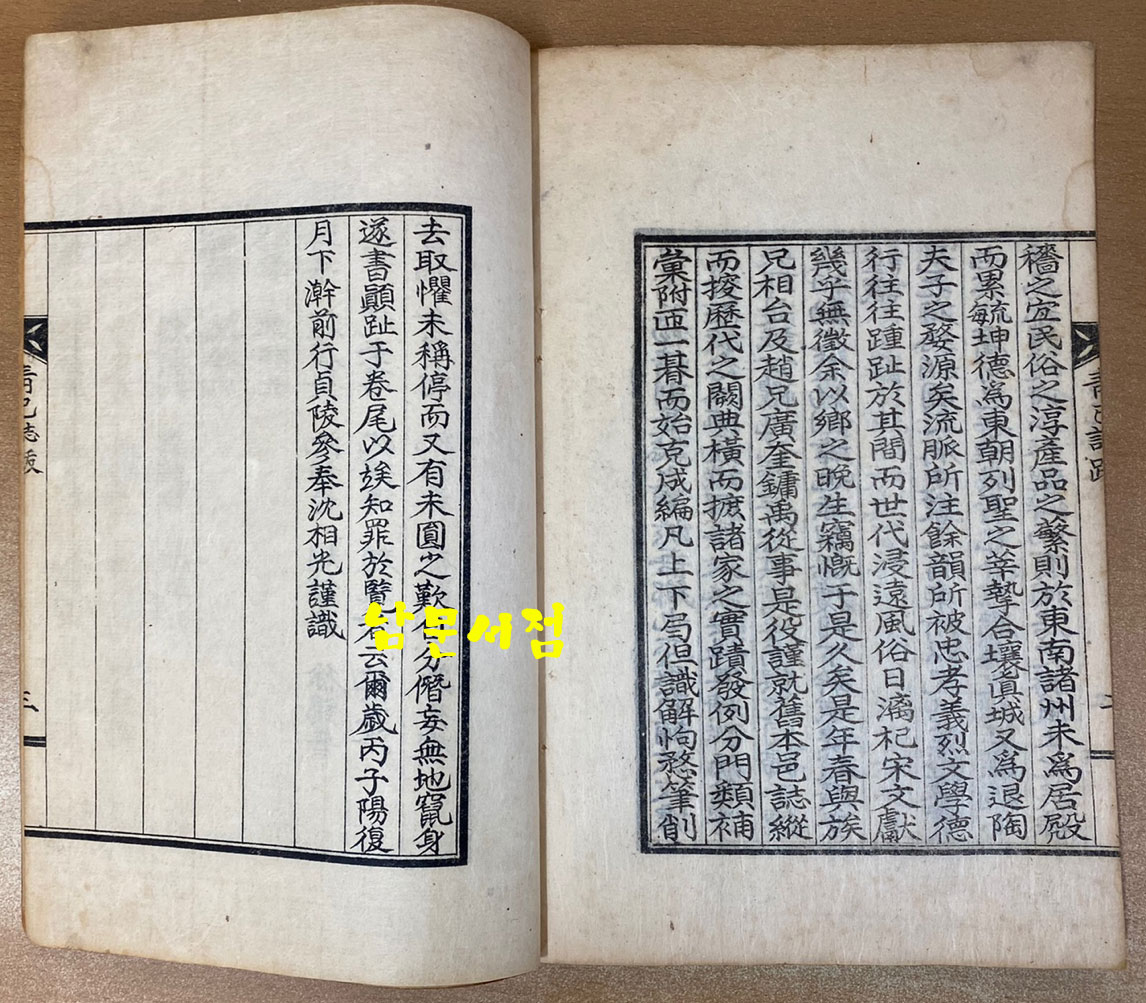 穡之宜民俗之淳產品之繁則於東南諸州未爲居殿
而累毓坤德爲東朝列聖之莘摯合壤眞城又爲退陶
夫子之婺源矣流脈所注餘韻所被忠孝義烈文學德
行往往踵趾於其間而世代浸遠風俗日漓杞宋文獻
幾乎無徵余以鄕之晚生竊慨于是久矣是年春與族
兄相台及趙兄廣奎鏞禹從事是役謹就舊本邑誌縱
而搜歷代之闕典橫而摭諸家之實蹟發例分門類補
彙附匝一朞而始克成編凡上下局但識解恂愗筆削
去取懼未稱停而又有未圓之歎 分僭妄無地竄身
遂書顚趾于卷尾以竢知罪於覽 云爾歲丙子陽復
月下澣前行貞陵參奉沈相光謹識
靑己誌
三
남문서점